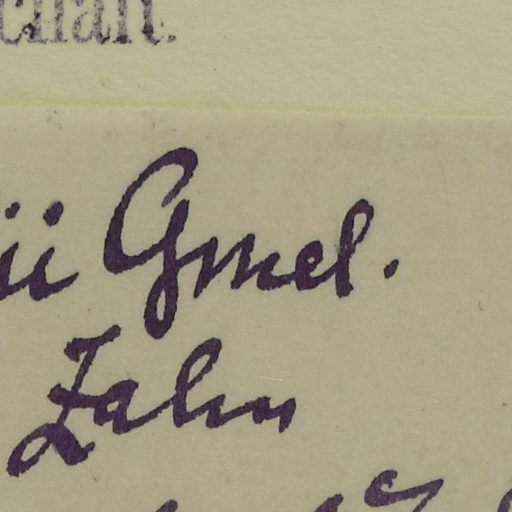 chaft.
ii Gmel.
Zahn